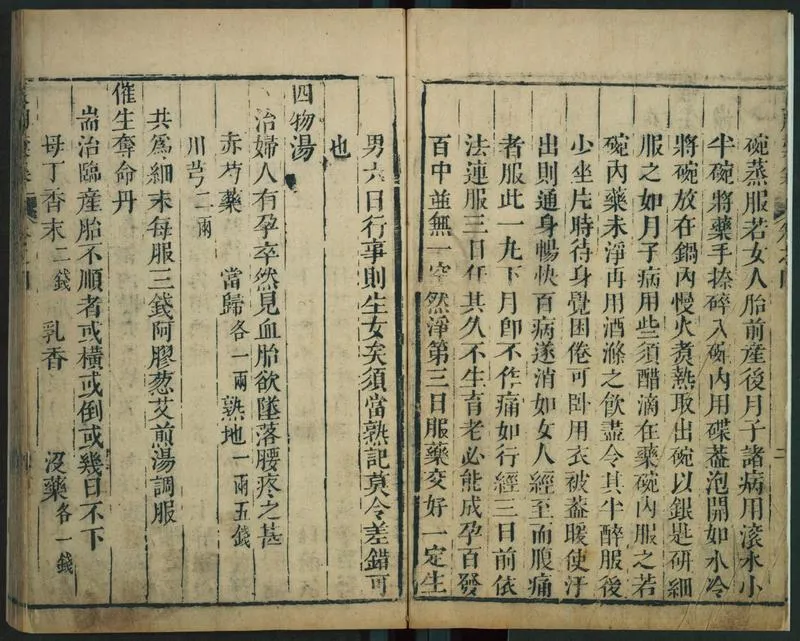 碗蒸服若女人胎前產後月子諸病用滾水小
半碗將藥手捺碎入碗內用碟蓋泡開如水冷
將碗放在鍋內慢火煮熱取出碗以銀匙研細
服之如月子病用些須醋滴在藥碗內服之若
碗內藥未淨再用酒滌之飲盡令其半醉服後
少坐片時待身覺困倦可卧用衣被蓋暖使汙
出則通身暢快百病遂消如女人經至而腹痛
者服此一九下月卽不作痛如行經三日前依
法連服三日任其久不生育老必能成孕百發
百中並無一空然淨第三日服藥交好一定生
男六日行事則生女矣須當熟記莫令差錯可
也
四物湯
治婦人有孕卒然見血胎欲墜落腰疼之甚
赤芍藥 當歸各一兩 熟地一兩五錢
川芎二兩
共爲細末每服三錢阿膠葱艾煎湯調服
催生奪命丹
耑治臨産胎不順者或橫或倒或幾日不下
母丁香末二錢 乳香 沒藥各一錢